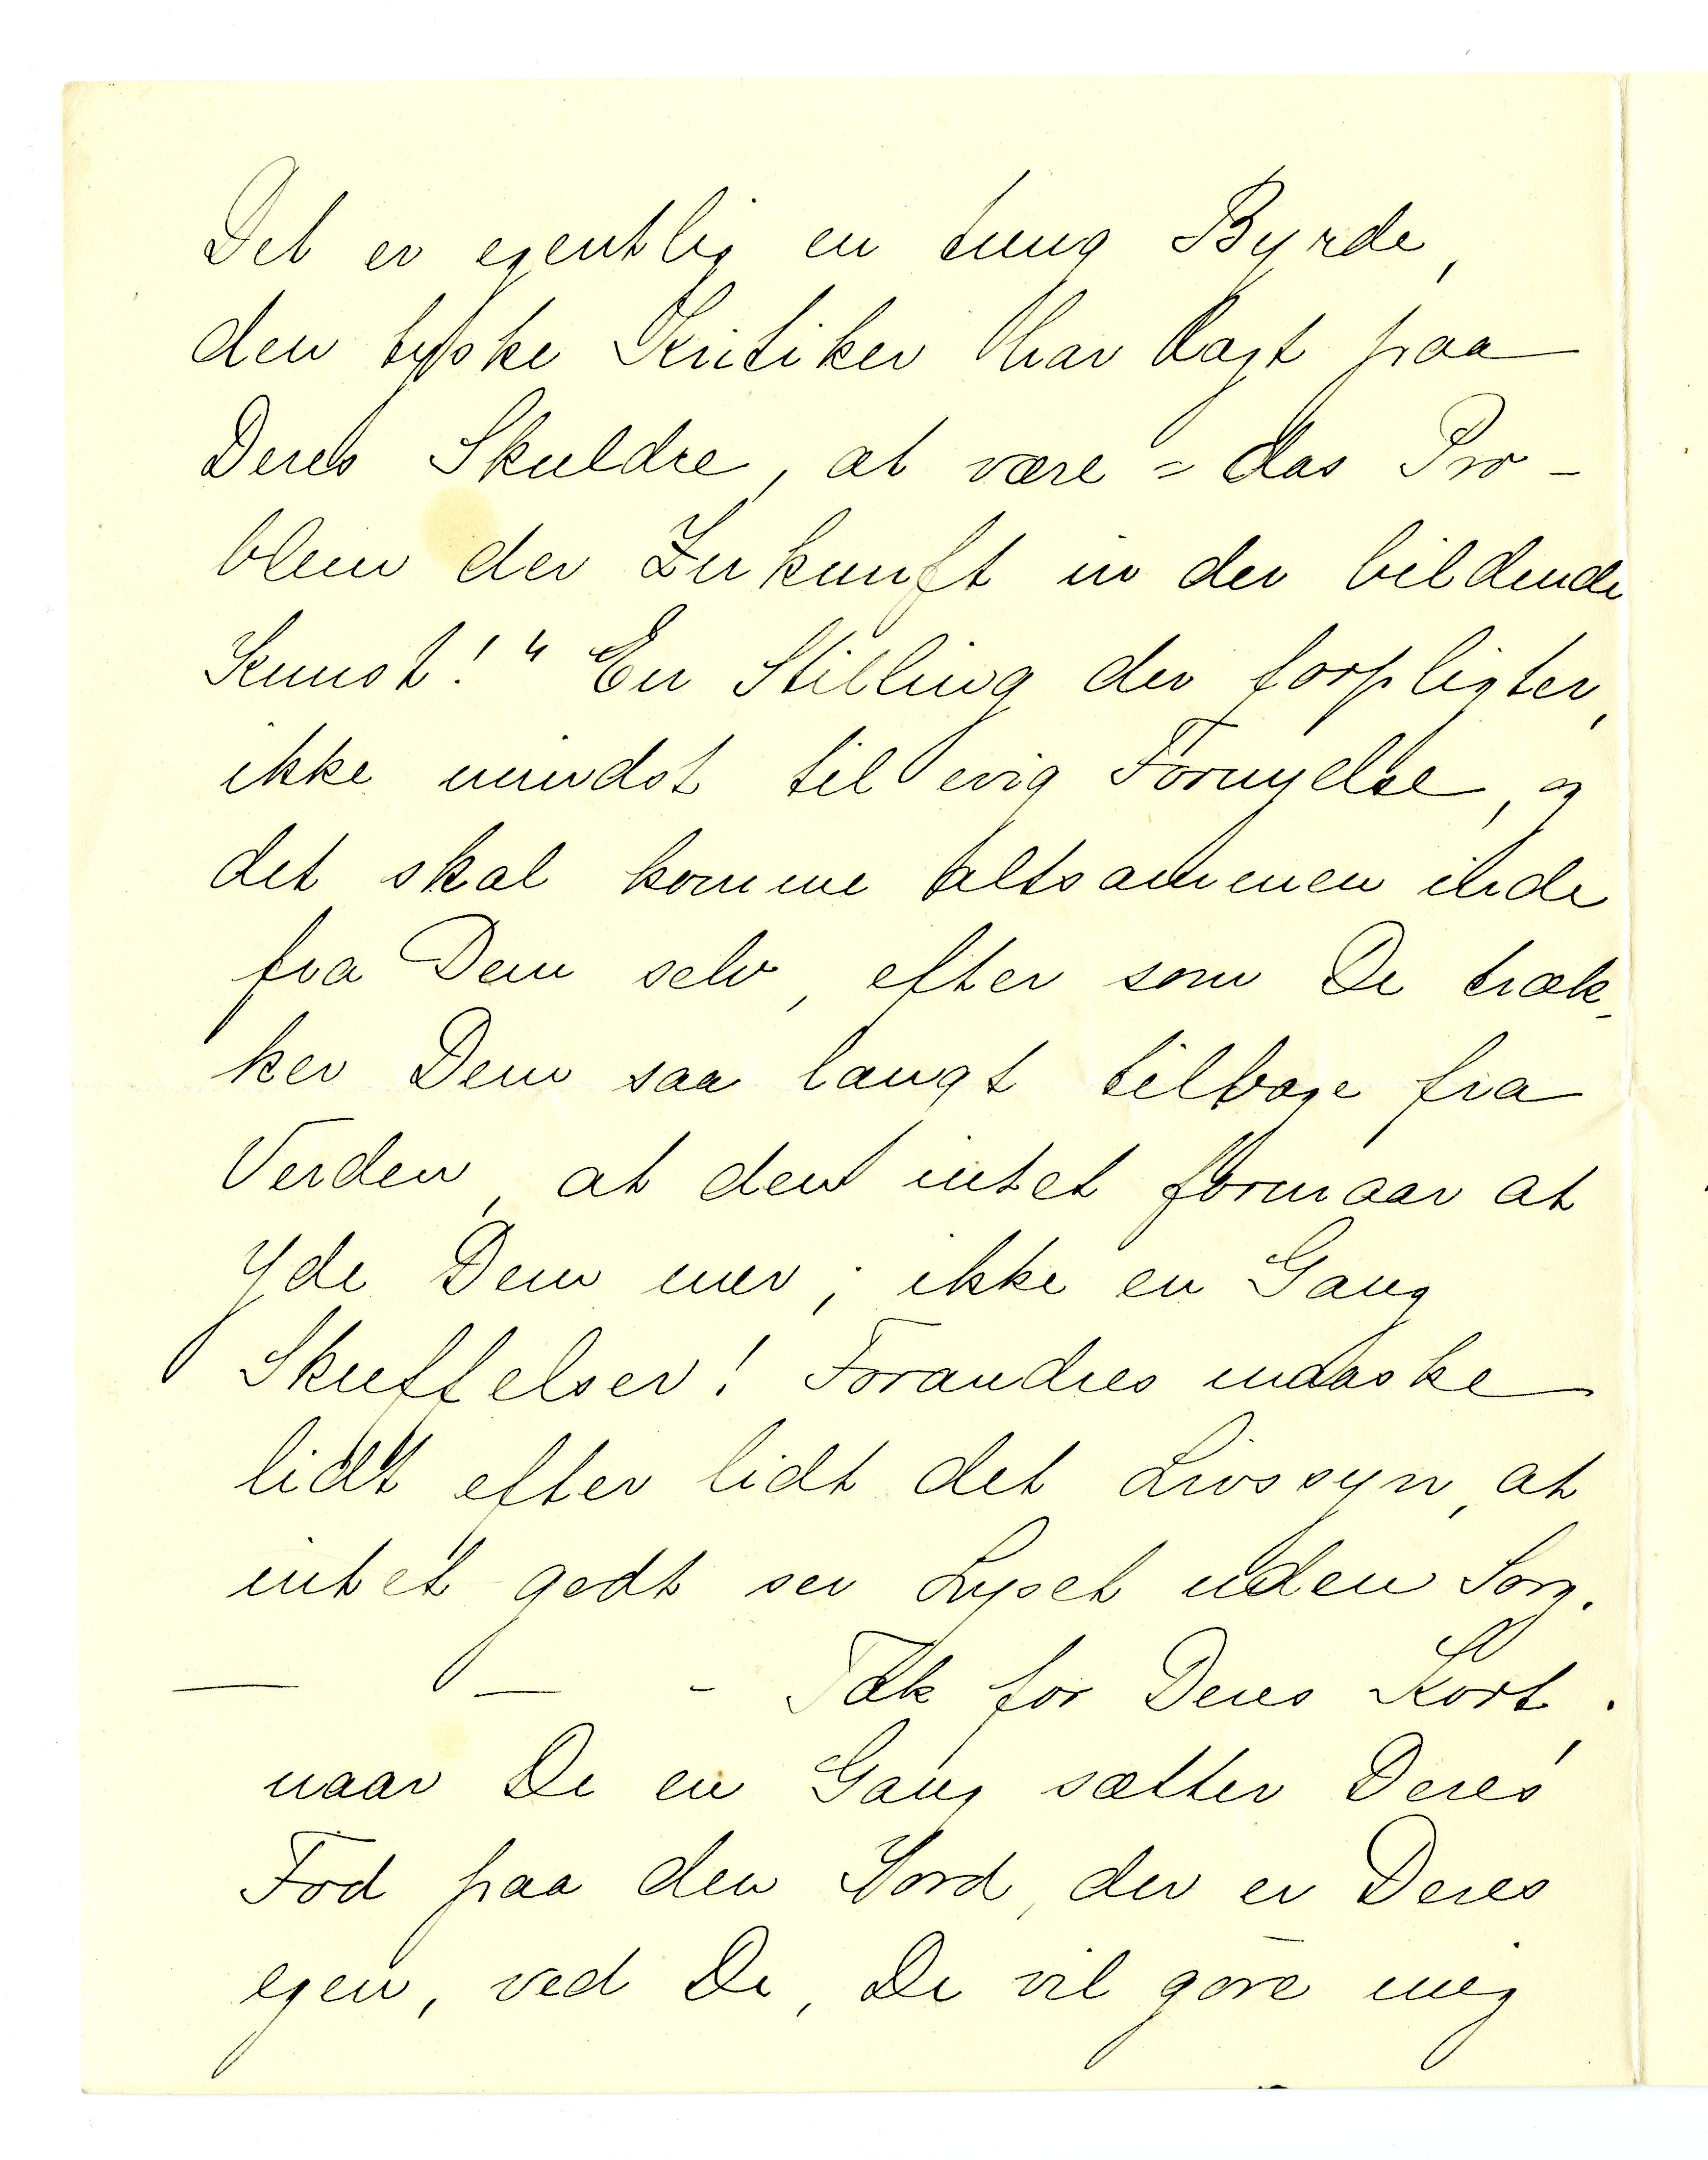 Det er egentlig en tung Byrde,
den tyske Kritiker har lagt paa
Deres Skuldre, at være = das Pro-
blem der Zukunft in der bildende
Kunst!" En Stilling der forpligter,
ikke mindst til evig Fornyelse, og
det skal komme altsammen inde
fra Dem selv, efter som De træk-
ker Dem saa langt tilbage fra
Verden, at den intet formaar at
yde Dem mer; ikke en Gang
Skuffelser! Forandres maaske
lidt efter lidt det Livssyn, at
intet godt ser Lyset uden Sorg.
— — - Tak for Deres Kort.
naar De en Gang sætter Deres
Fod paa den Jord, der er Deres
egen, ved De, De vil gøre mig